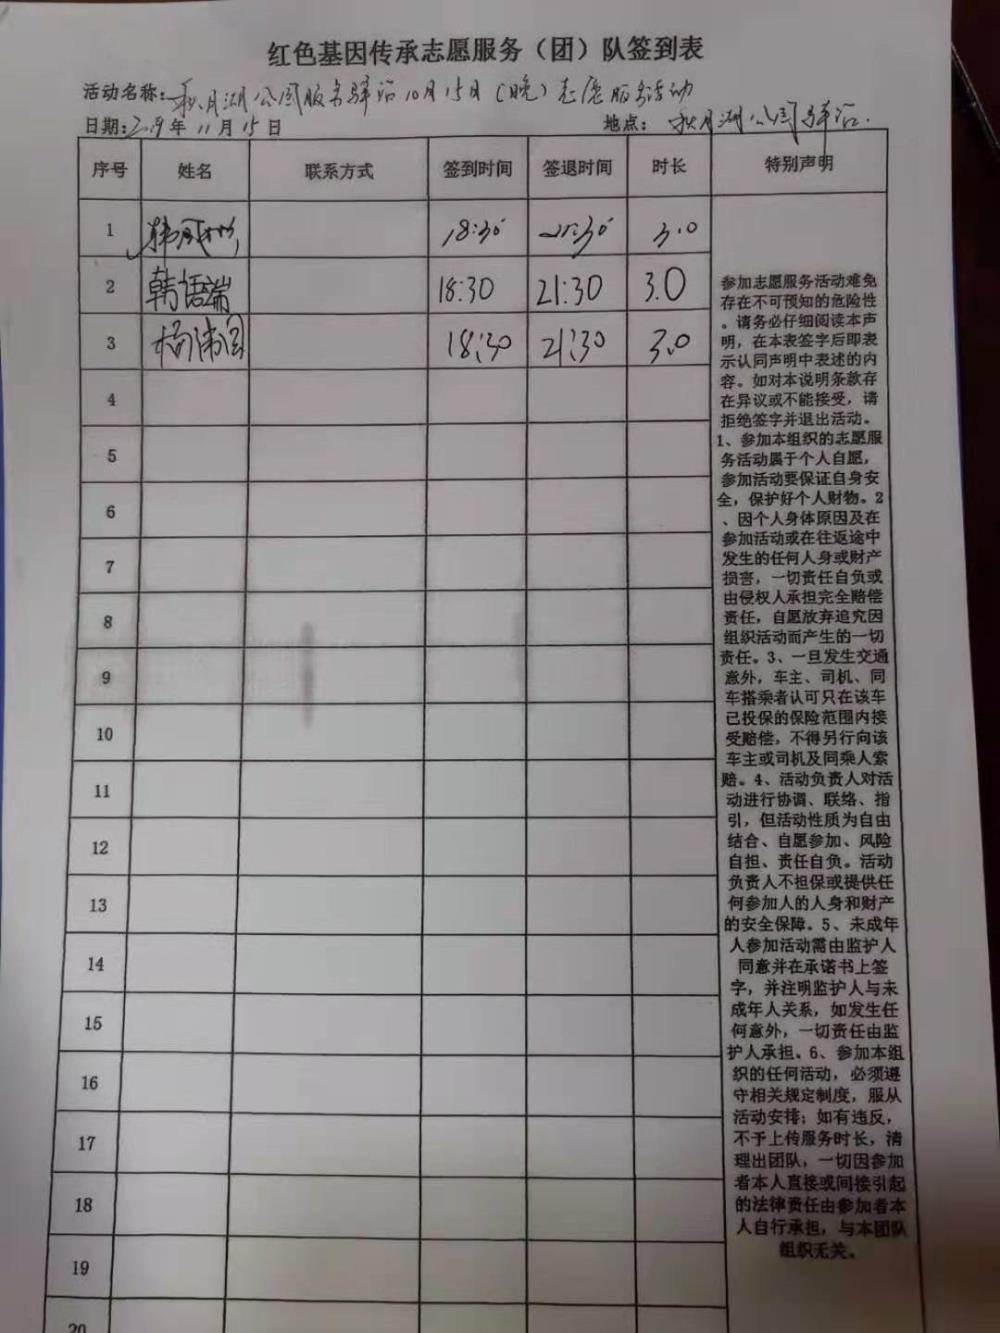 红色基因传承志愿服务（团）队签到表
活动名称：秋月湖公园服务驿站10月15日（晚）志愿服务活动
日期：2019年11月15日 地点：秋月湖公园驿站.
序号 姓名 联系方式 签到时间 签退时间 时长 特别声明
1 18:30 21:30 3.0
2 韩语端 18:30 21:30 3.0
3 18:30 21:30 3.0
4
5
6
7
8
9
10
11
12
13
14
15
16
17
18
19
20
参加志愿服务活动难免
存在不可预知的危险性
。请务必仔细阅读本声
明，在本表签字后即表
示认同声明中表述的内
容。如对本说明条款存
在异议或不能接受，请
拒绝签字并退出活动。
1、参加本组织的志愿服
务活动属于个人自愿，
参加活动要保证自身安
全，保护好个人财物。2
、因个人身体原因及在
参加活动或在往返途中
发生的任何人身或财产
损害，一切责任自负或
由侵权人承担完全赔偿
责任，自愿放弃追究因
组织活动而产生的一切
责任。3、一旦发生交通
意外，车主、司机、同
车搭乘者认可只在该车
已投保的保险范围内接
受赔偿，不得另行向该
车主或司机及同乘人索
赔。4、活动负责人对活
动进行协调、联络、指
引，但活动性质为自由
结合、自愿参加、风险
自担、责任自负。活动
负责人不担保或提供任
何参加人的人身和财产
的安全保障。5、未成年
人参加活动需由监护人
同意并在承诺书上签
字，并注明监护人与未
成年人关系，如发生任
何意外，一切责任由监
护人承担。6、参加本组
织的任何活动，必须遵
守相关规定制度，服从
活动安排；如有违反，
不予上传服务时长，清
理出团队，一切因参加
者本人直接或间接引起
的法律责任由参加者本
人自行承担，与本团队
组织无关。